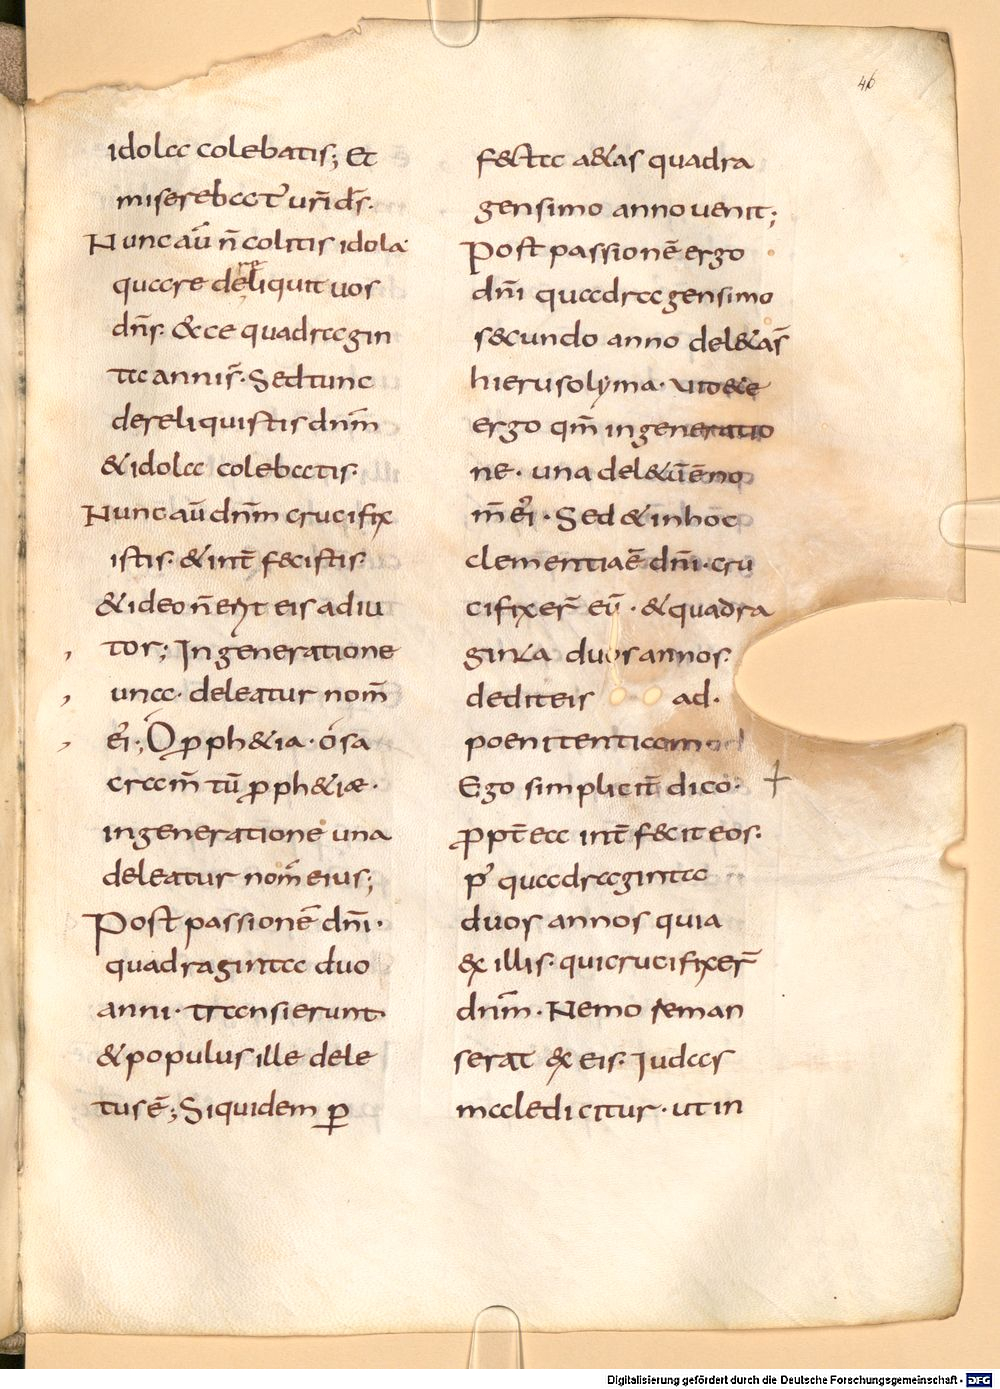 46
idola colebatis; Et
miserebat᷑ ur̄i d̄s.
Nunc aū n̄ colitis idola
quare dereliquit uos
dn̄s. Ecce quadragin
ta annis. Sed tunc
dereliquistis dn̄m
& idola colebatis.
Nunc aū dn̄m crucifix
istis. & int̄ fecistis.
& ideo n̄ erit eis adiu
tor; In generatione
una. deleatur nom̄
ei᷒; O p̱ph&ia. o sa
cram̄tū p̱ph&iæ.
in generatione una
deleatur nom̄ eius;
Post passionē dn̄i.
quadraginta duo
anni. transierunt
& populus ille dele
tus ē; Siquidem p̱
fecta a&as quadra
gensimo anno uenit;
Post passionē ergo
dn̄i quadragensimo
secundo anno del&a s̄
hierusolyma. uid&e
ergo qm̄ in generatio
ne. una del&ū ē no
m̄ ei᷒. Sed & in hoc
clementia ē dn̄i. cru
cifixer̄ eū. & quadra
ginta duos annos.
dedit eis ad.
poenitentiam
Ego simplicit̄ dico.
p̱pt̄ea int̄fecit eos.
p᷒ quadraginta
duos annos quia
ex illis. qui crucifixer̄
dn̄m. Nemo reman
serat ex eis. Iudas
maledicitur. ut in
Digitalisierung gefördert durch die Deutsche Forschungsgemeinschaft - DFG